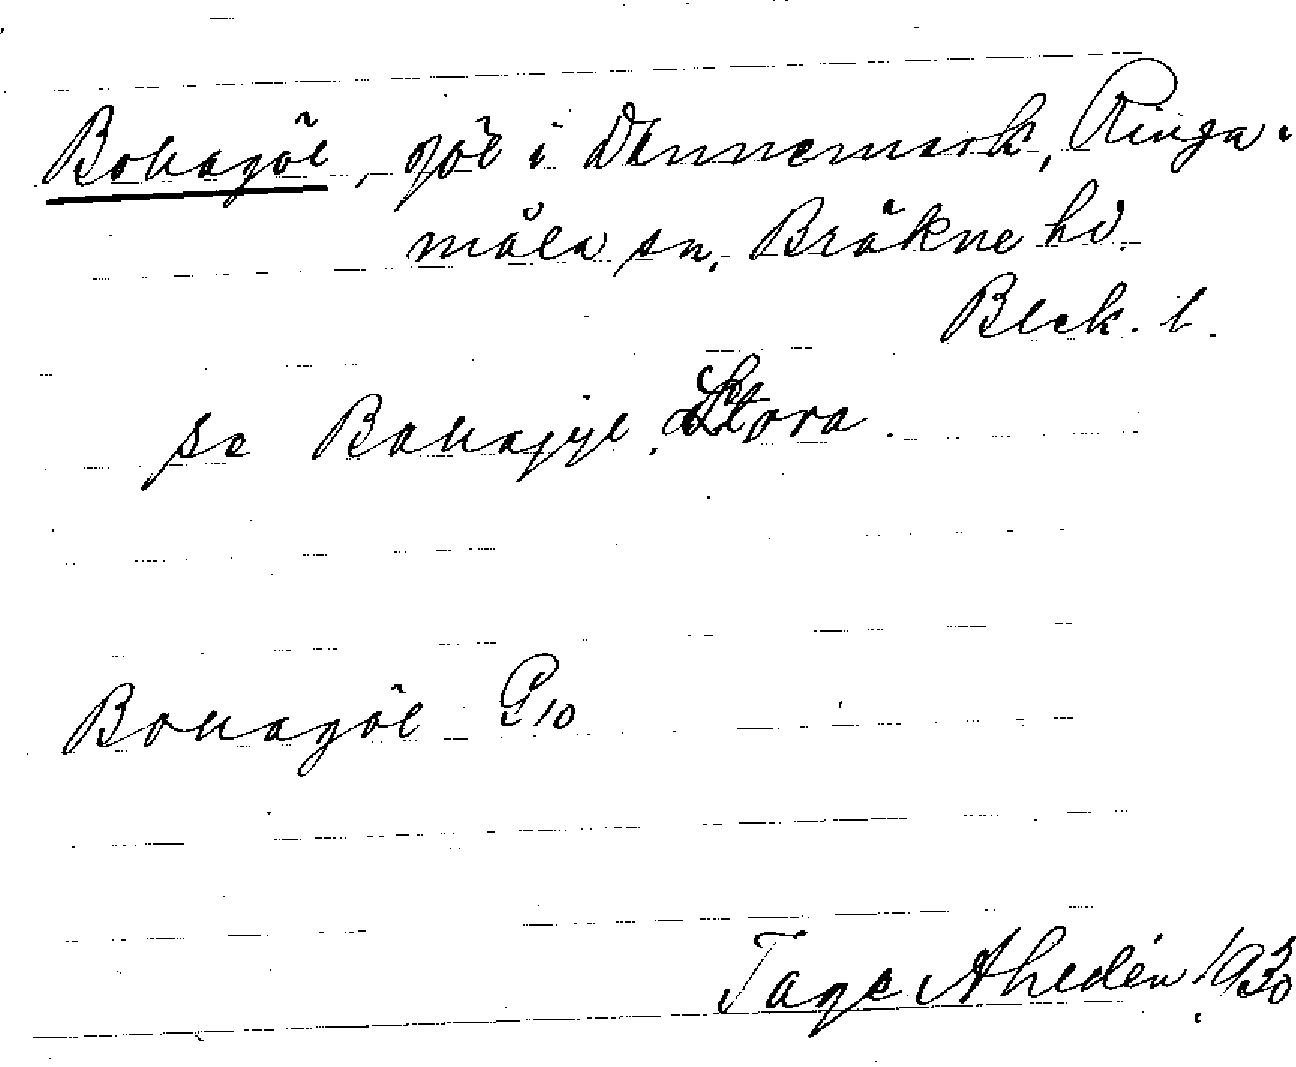 Bokagöl, göl i Dännemark, Ringa-
måla sn, Bräkne hd.
Blek. l.
se Bokagyl, Stora.
Bokagöl G10
Tage Ahldén 1930